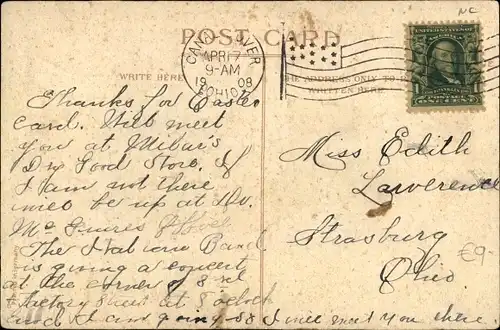 NC
POST CARD
CANAL DOVER
APR 17
9-AM
1908
OHIO
WRITE HERE
THE ADDRESS ONLY TO BE
WRITTEN HERE
UNITED STATES OF
POSTAGE
ONE CENT
Thanks for Easter
card. Will meet
you at
Dry Good Store. If
I am not there
will be up at Dr.
Mc Guires Office
The Band
is giving a concert
at the corner of 3rd
& Factory Street at 8 oclock
and I am going so I will meet you there
Miss Edith
Lawerence
Strasburg
Ohio.
€9-